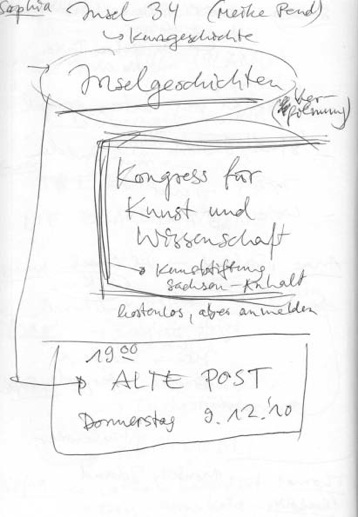 Sophia Insel 34 (Meike Pend)
Kurzgeschichte
Inselgeschichten
Kongress für
Kunst und
Wissenschaft
Kunststiftung
Sachsen-Anhalt
kostenlos, aber anmelden
19 00
ALTE POST
Donnerstag 9.12.'10